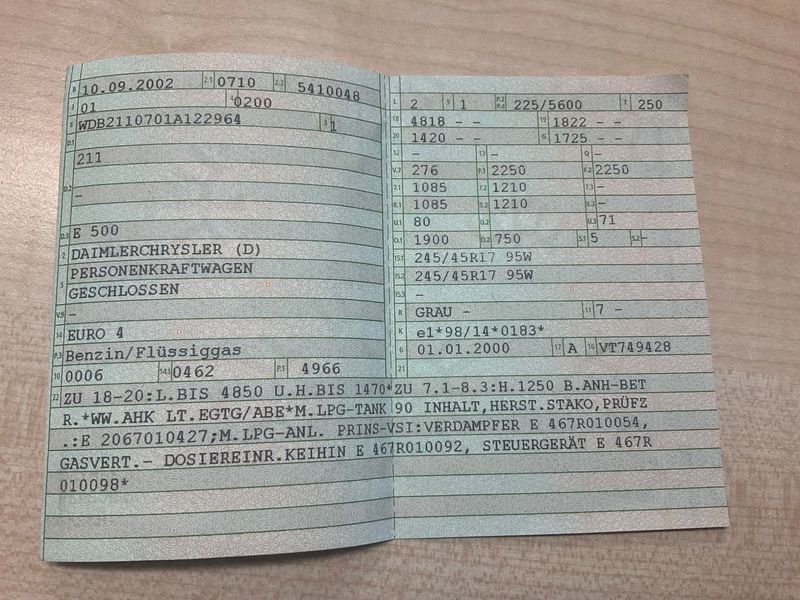 B 10.09.2002 2.1 0710 2.2 5410048
J 01 4 0200
E WDB2110701A122964 3 1
D.1
211
D.2
–
D.3 E 500
2 DAIMLERCHRYSLER (D)
PERSONENKRAFTWAGEN
5 GESCHLOSSEN
V.9 –
14 EURO 4
P.3 Benzin/Flüssiggas
10 0006 14.1 0462 P.1 4966
L 2 9 1 P.2 P.4 225/5600 T 250
18 4818 – – 19 1822 – –
20 1420 – – G 1725 – –
12 – 13 – Q –
V.7 276 F.1 2250 F.2 2250
7.1 1085 7.2 1210 7.3 –
8.1 1085 8.2 1210 8.3 –
U.1 80 U.2 U.3 71
O.1 1900 O.2 750 S.1 5 S.2 –
15.1 245/45R17 95W
15.2 245/45R17 95W
15.3 –
R GRAU – 11 7 –
K e1*98/14*0183*
6 01.01.2000 17 A 16 VT749428
21
22 ZU 18-20:L.BIS 4850 U.H.BIS 1470*ZU 7.1-8.3:H.1250 B.ANH-BET
R.*WW.AHK LT.EGTG/ABE*M.LPG-TANK 90 INHALT,HERST.STAKO,PRÜFZ
.:E 2067010427;M.LPG-ANL. PRINS-VSI:VERDAMPFER E 467R010054,
GASVERT.– DOSIEREINR.KEIHIN E 467R010092, STEUERGERÄT E 467R
010098*